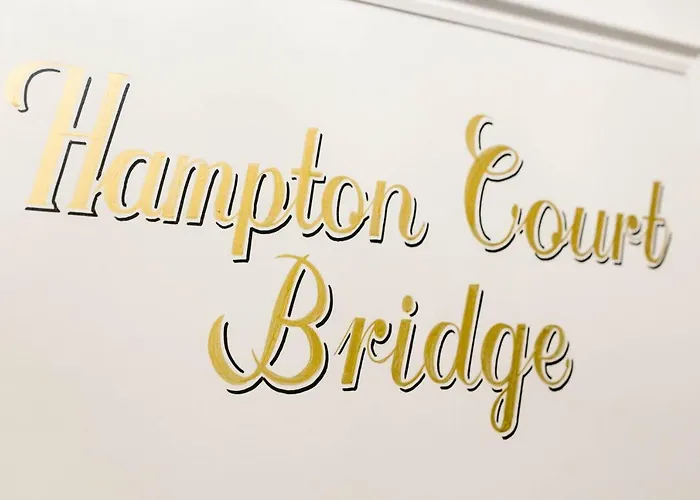 Hampton Court
Bridge